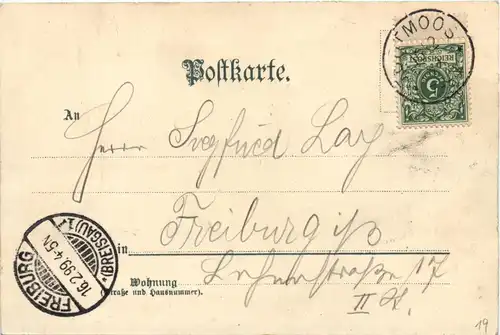 TMOOS
REICHSPOST
5
Postkarte.
An
Herrn Siegfried Lay
Freiburg i/B
in
Wohnung
(Straße und Hausnummer).
17
II St.
FREIBURG
16.2.99.4-5N
(BREISGAU) 1.
19